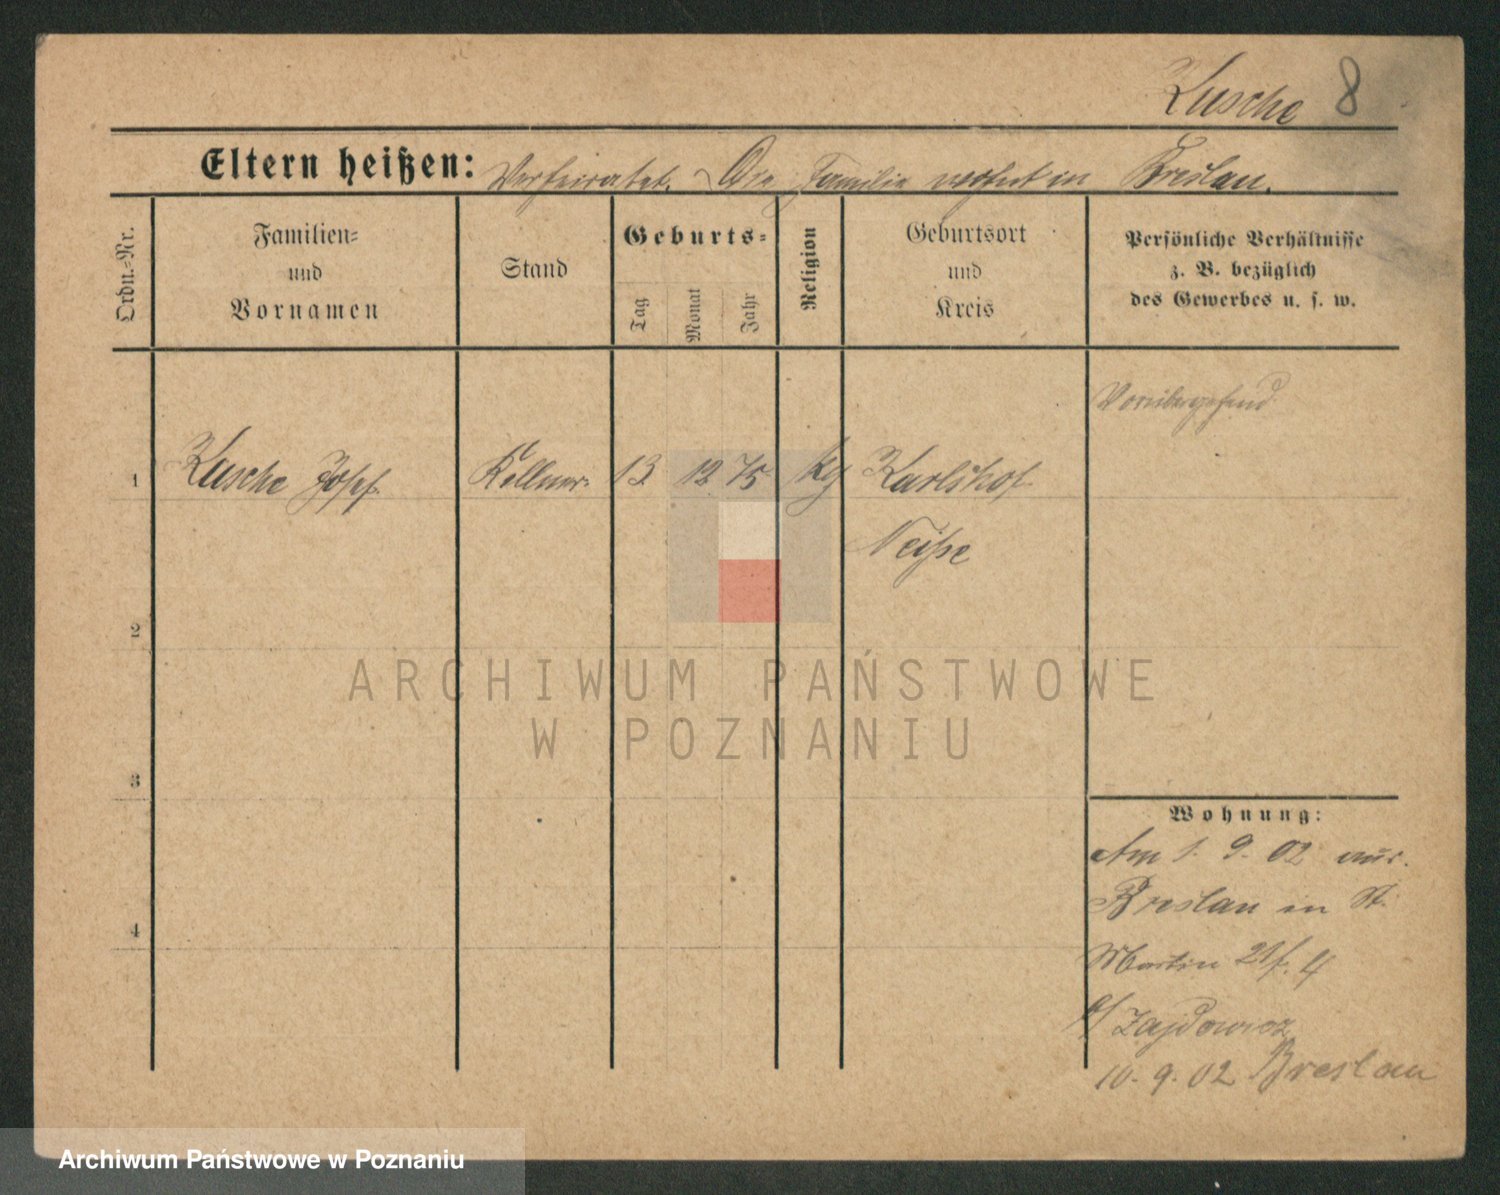 Kusche 8
Eltern heißen: Verheiratet. Die Familie wohnt in Breslau.
Ordn.-Nr.
Familien-
und
Vornamen
Stand
Geburts-
Tag
Monat
Jahr
Religion
Geburtsort
und
Kreis
Persönliche Verhältnisse
z. B. bezüglich
des Gewerbes u. s. w.
Vorübergehend
1 Kusche Josef. Kellner. 13 12 75 Karlshof
Neiße
2
3
4
Wohnung:
Am 1. 9. 02 aus
Breslau in St.
Martin 21 4
b/ Zajdowicz
10. 9. 02 Breslau
ARCHIWUM PAŃSTWOWE
W POZNANIU
Archiwum Państwowe w Poznaniu